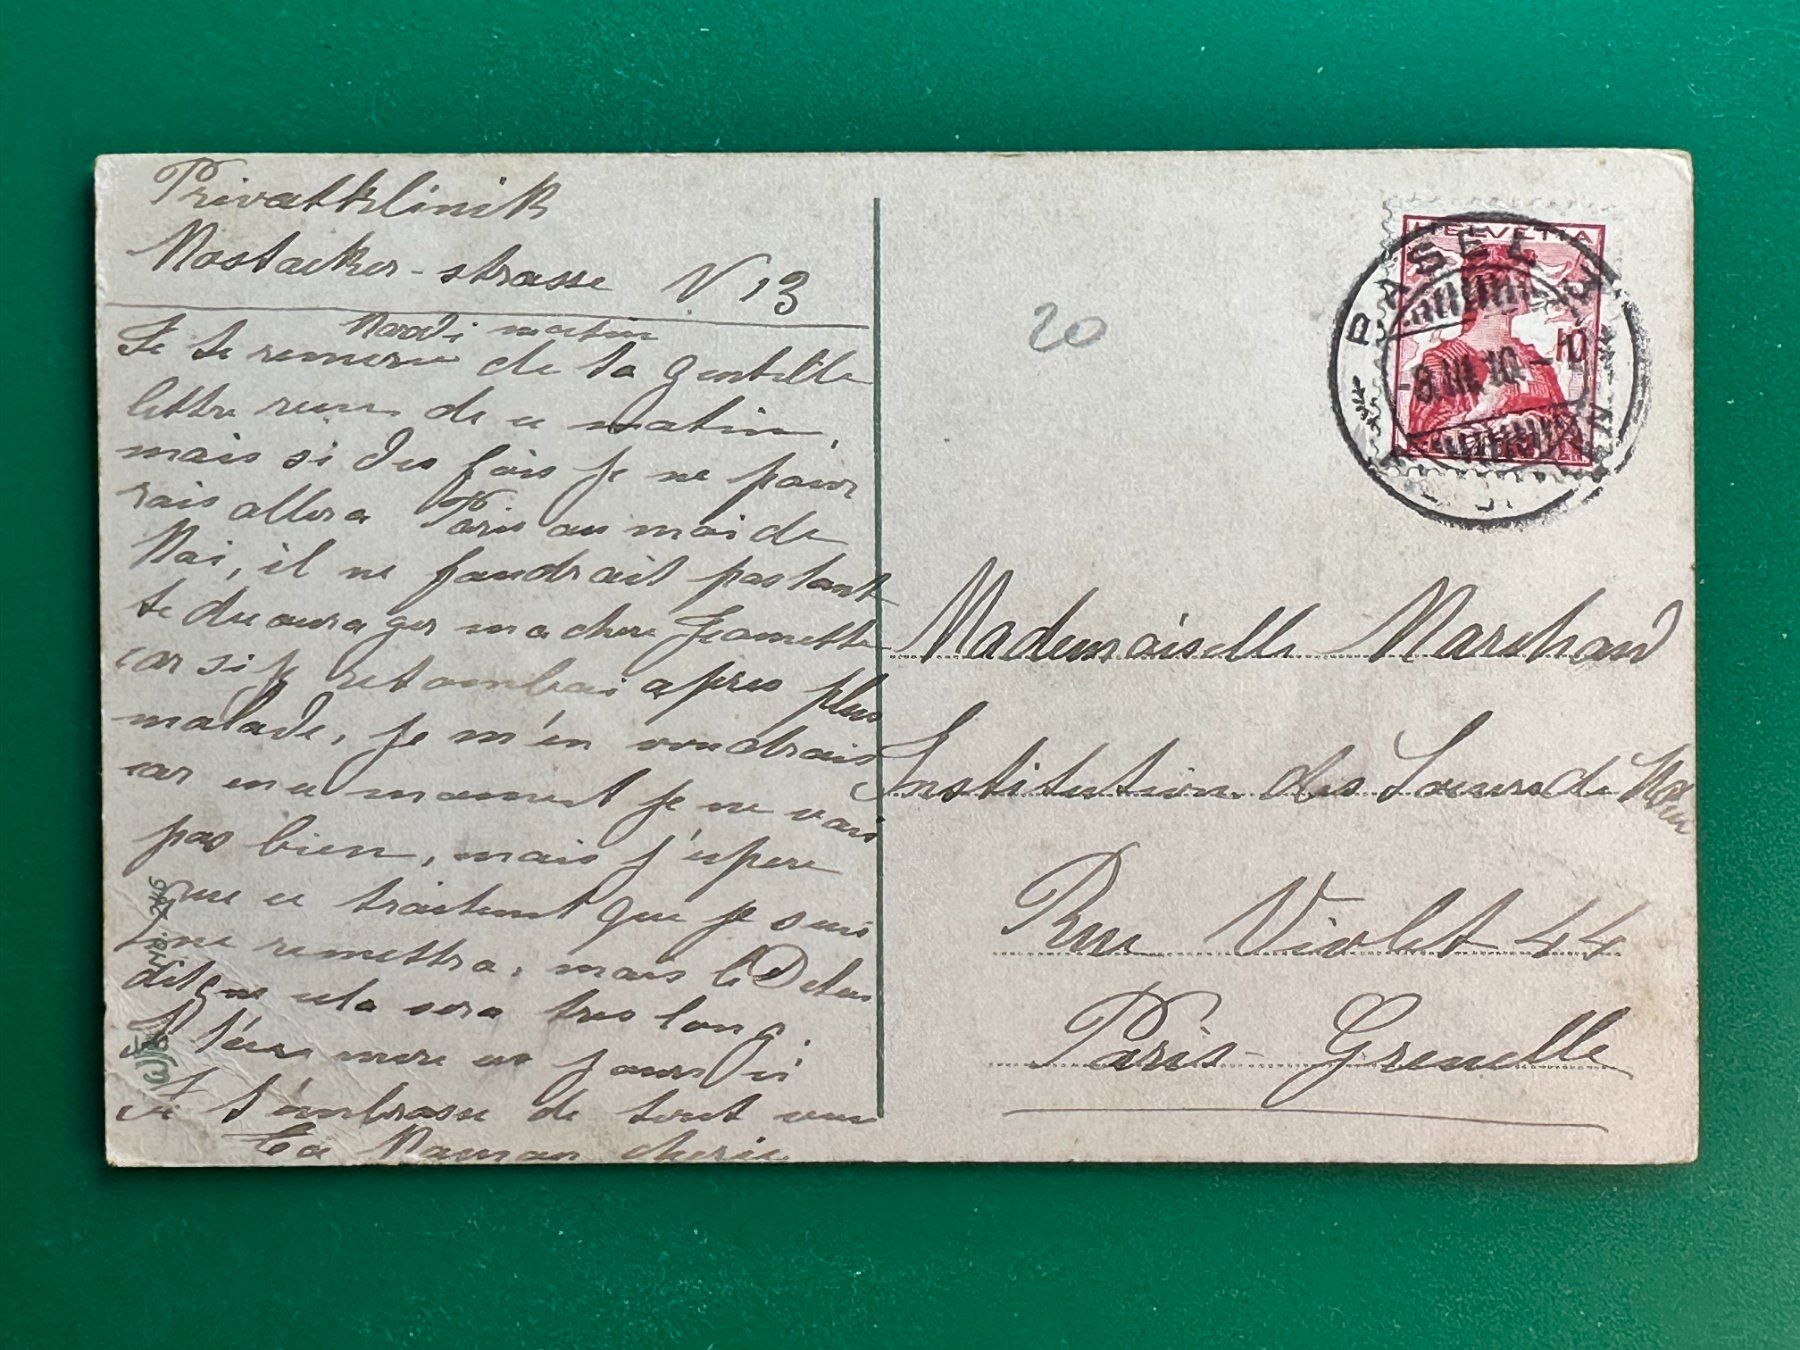 Privatklinik
Mostacker-strasse N 13
Mardi matin
Je te remercie de ta gentille
lettre reçue de ce matin,
mais si des fois je ne pour
rais aller a Paris au mois de
Mai, il ne faudrait pas tant
te decourager ma chere Jeannette
car si je retombais apres plus
malade, je m'en voudrais
car en ce moment je ne vais
pas bien, mais j'espere
que ce traitement que je suis
me remettra, mais le Docteur
dit que cela sera tres long.
Je t'embrasse de tout cœur
Ta Maman cherie
No. 246
20
HELVETIA
BASEL
-8.III.10.-10
Mademoiselle Marchand
Institution des Soeurs de
Rue Violet 44
Paris-Grenelle